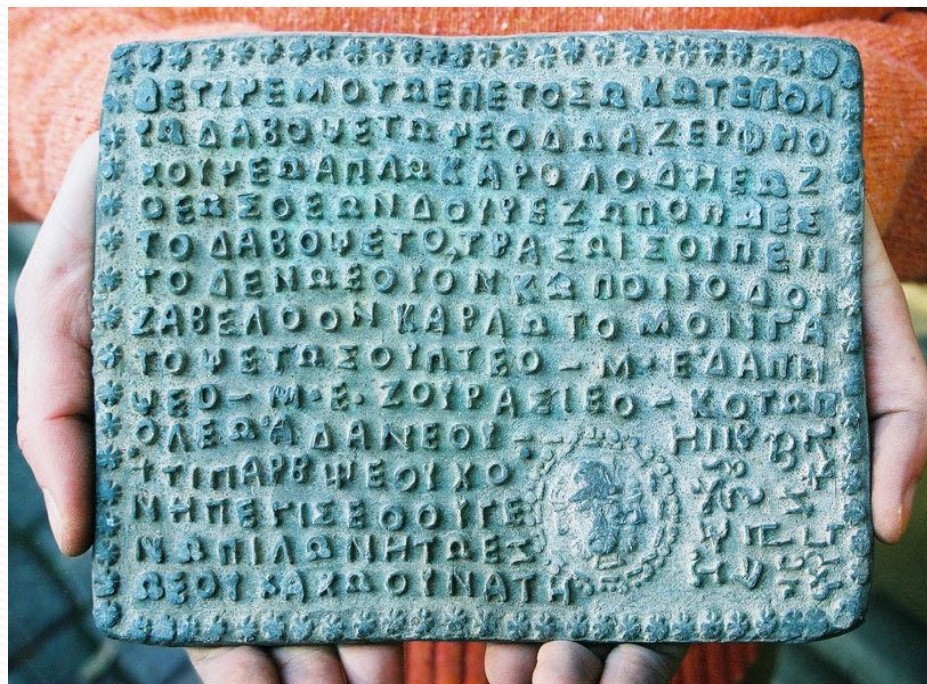 ΔΕΤΥΡΕΜΟΥΩΕΠΕΤΟΣΩΚΩΤΕΠΟΛ
ΡΩΔΑΒΟΨΕΤΩΨΕΟΔΩΑΖΕΡΦΗΟ
ΧΟΥΨΕΩΑΠΛΩΚΑΡΟΛΟΔΗΕΩΖ
ΟΕΩΣΟΕΩΝΔΟΥΨΕΖΩΠΟΠΩΕΣ
ΤΟΔΑΒΟΨΕΤΟΤΡΑΣΩΙΣΟΥΠΕΠ
ΤΟΔΕΝΩΕΟΥΟΝΚΩΠΟΙΝΟΔΟΙ
ΖΑΒΕΛΟΟΝΚΑΡΛΩΤΟΜΟΝΓΑ
ΤΟΨΕΤΩΣΟΥΠΤΕΟ – Μ·ΕΔΑΠΗ
ΨΕΟ – Μ·Ε·ΖΟΥΡΑΣΙΕΟ – ΚΟΤΩΠ
ΟΛΕΩΑΔΑΝΕΟΥ –
ΤΤΙΠΑΡΒΨΕΟΥΧΟ
ΝΗΠΕΓΙΣΕΟΟΥΓΕ
ΝΩΠΙΛΩΝΗΤΩΕΣ
ΣΩΕΟΥΚΑΧΩΟΥΝΑΤΗ